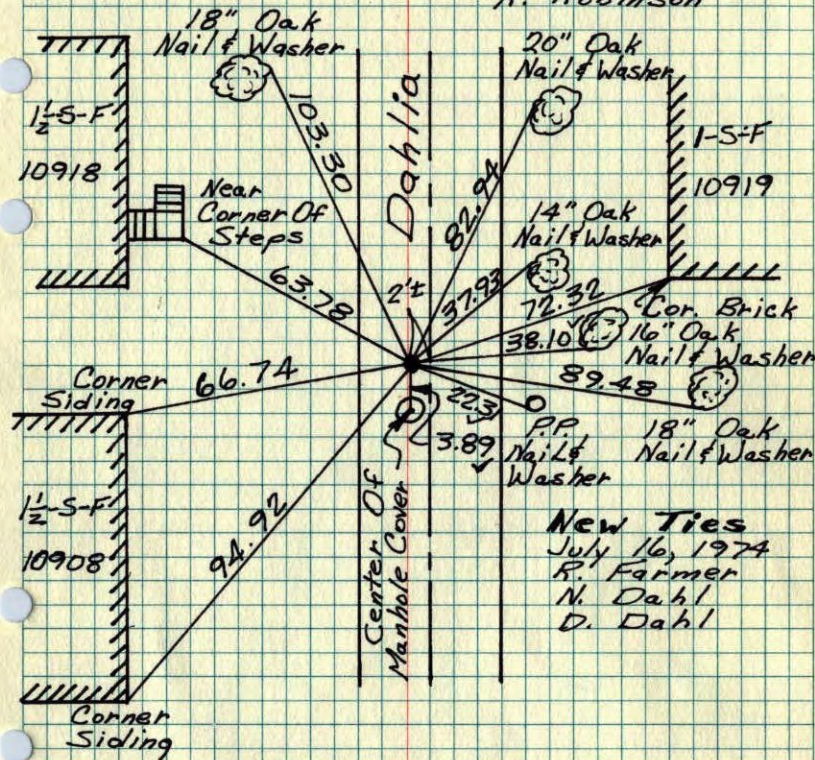 R. Robinson
18" Oak
Nail & Washer
20" Oak
Nail & Washer
1½-S-F
10918
103.30
Dahlia
1-S-F
10919
Near
Corner Of
Steps
82.94
14" Oak
Nail & Washer
63.78
2'±
37.93
72.32
Cor. Brick
38.10
16" Oak
Nail & Washer
Corner
Siding
66.74
89.48
22.3
3.89
P.P.
Nail &
Washer
18" Oak
Nail & Washer
1½-S-F
10908
94.92
Center Of
Manhole Cover
New Ties
July 16, 1974
R. Farmer
N. Dahl
D. Dahl
Corner
Siding